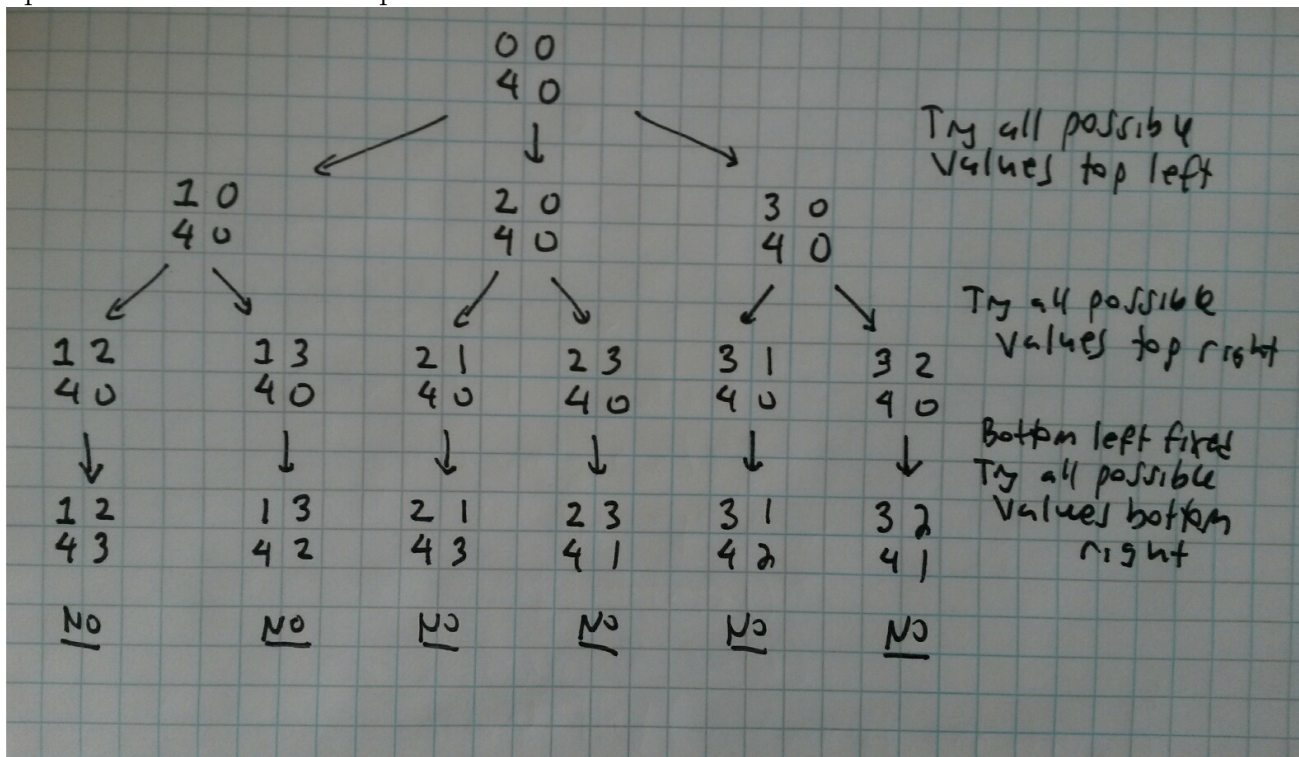 0 0
4 0
Try all possible
values top left
1 0
4 0
2 0
4 0
3 0
4 0
Try all possible
values top right
1 2
4 0
1 3
4 0
2 1
4 0
2 3
4 0
3 1
4 0
3 2
4 0
Bottom left fixed
Try all possible
values bottom
right
1 2
4 3
1 3
4 2
2 1
4 3
2 3
4 1
3 1
4 2
3 2
4 1
NO
NO
NO
NO
NO
NO